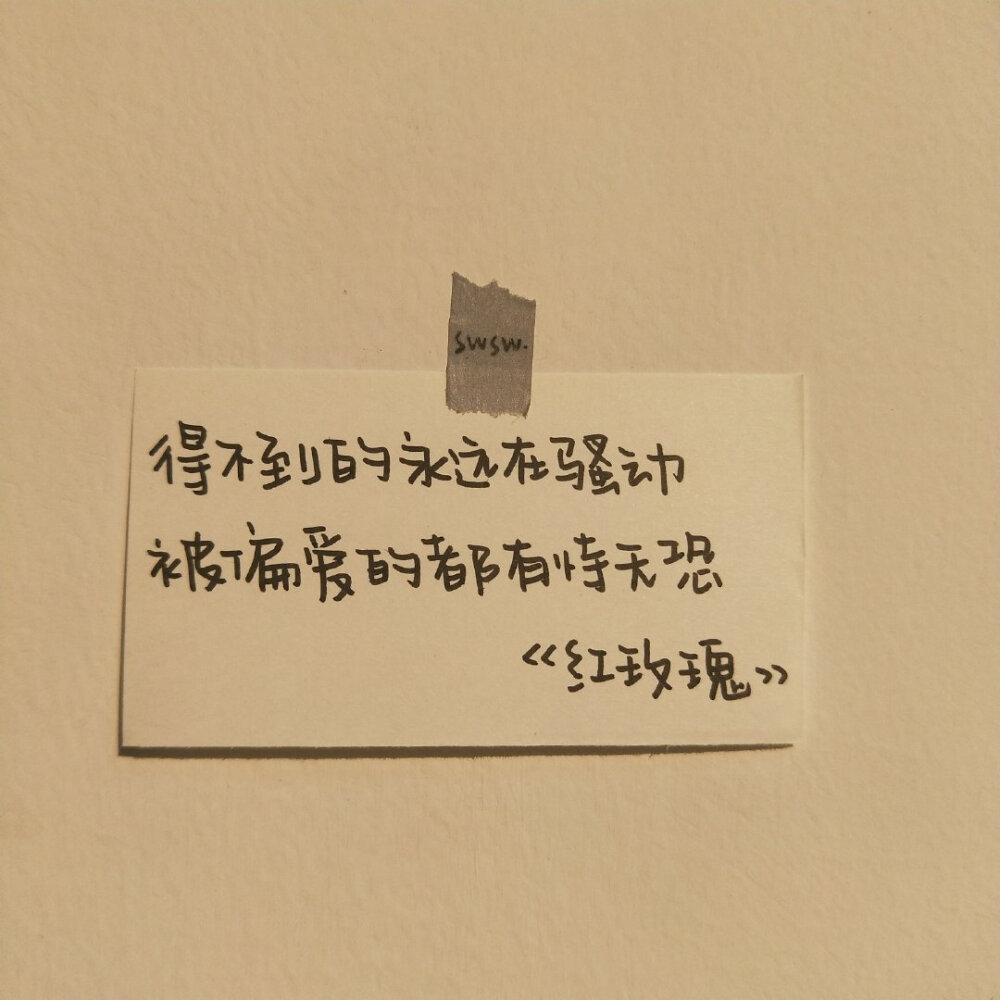 swsw.
得不到的永远在骚动
被偏爱的都有恃无恐
《红玫瑰》